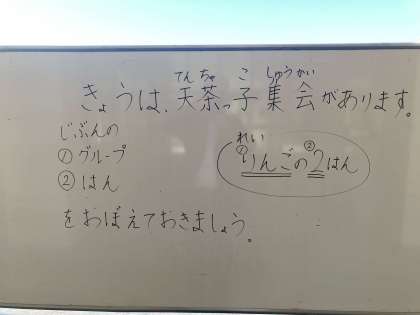 きょうは、天茶っ子集会があります。
てんちゃ こ しゅうかい
じぶんの
①グループ
②はん
れい
① ②
りんごの2はん
をおぼえておきましょう。